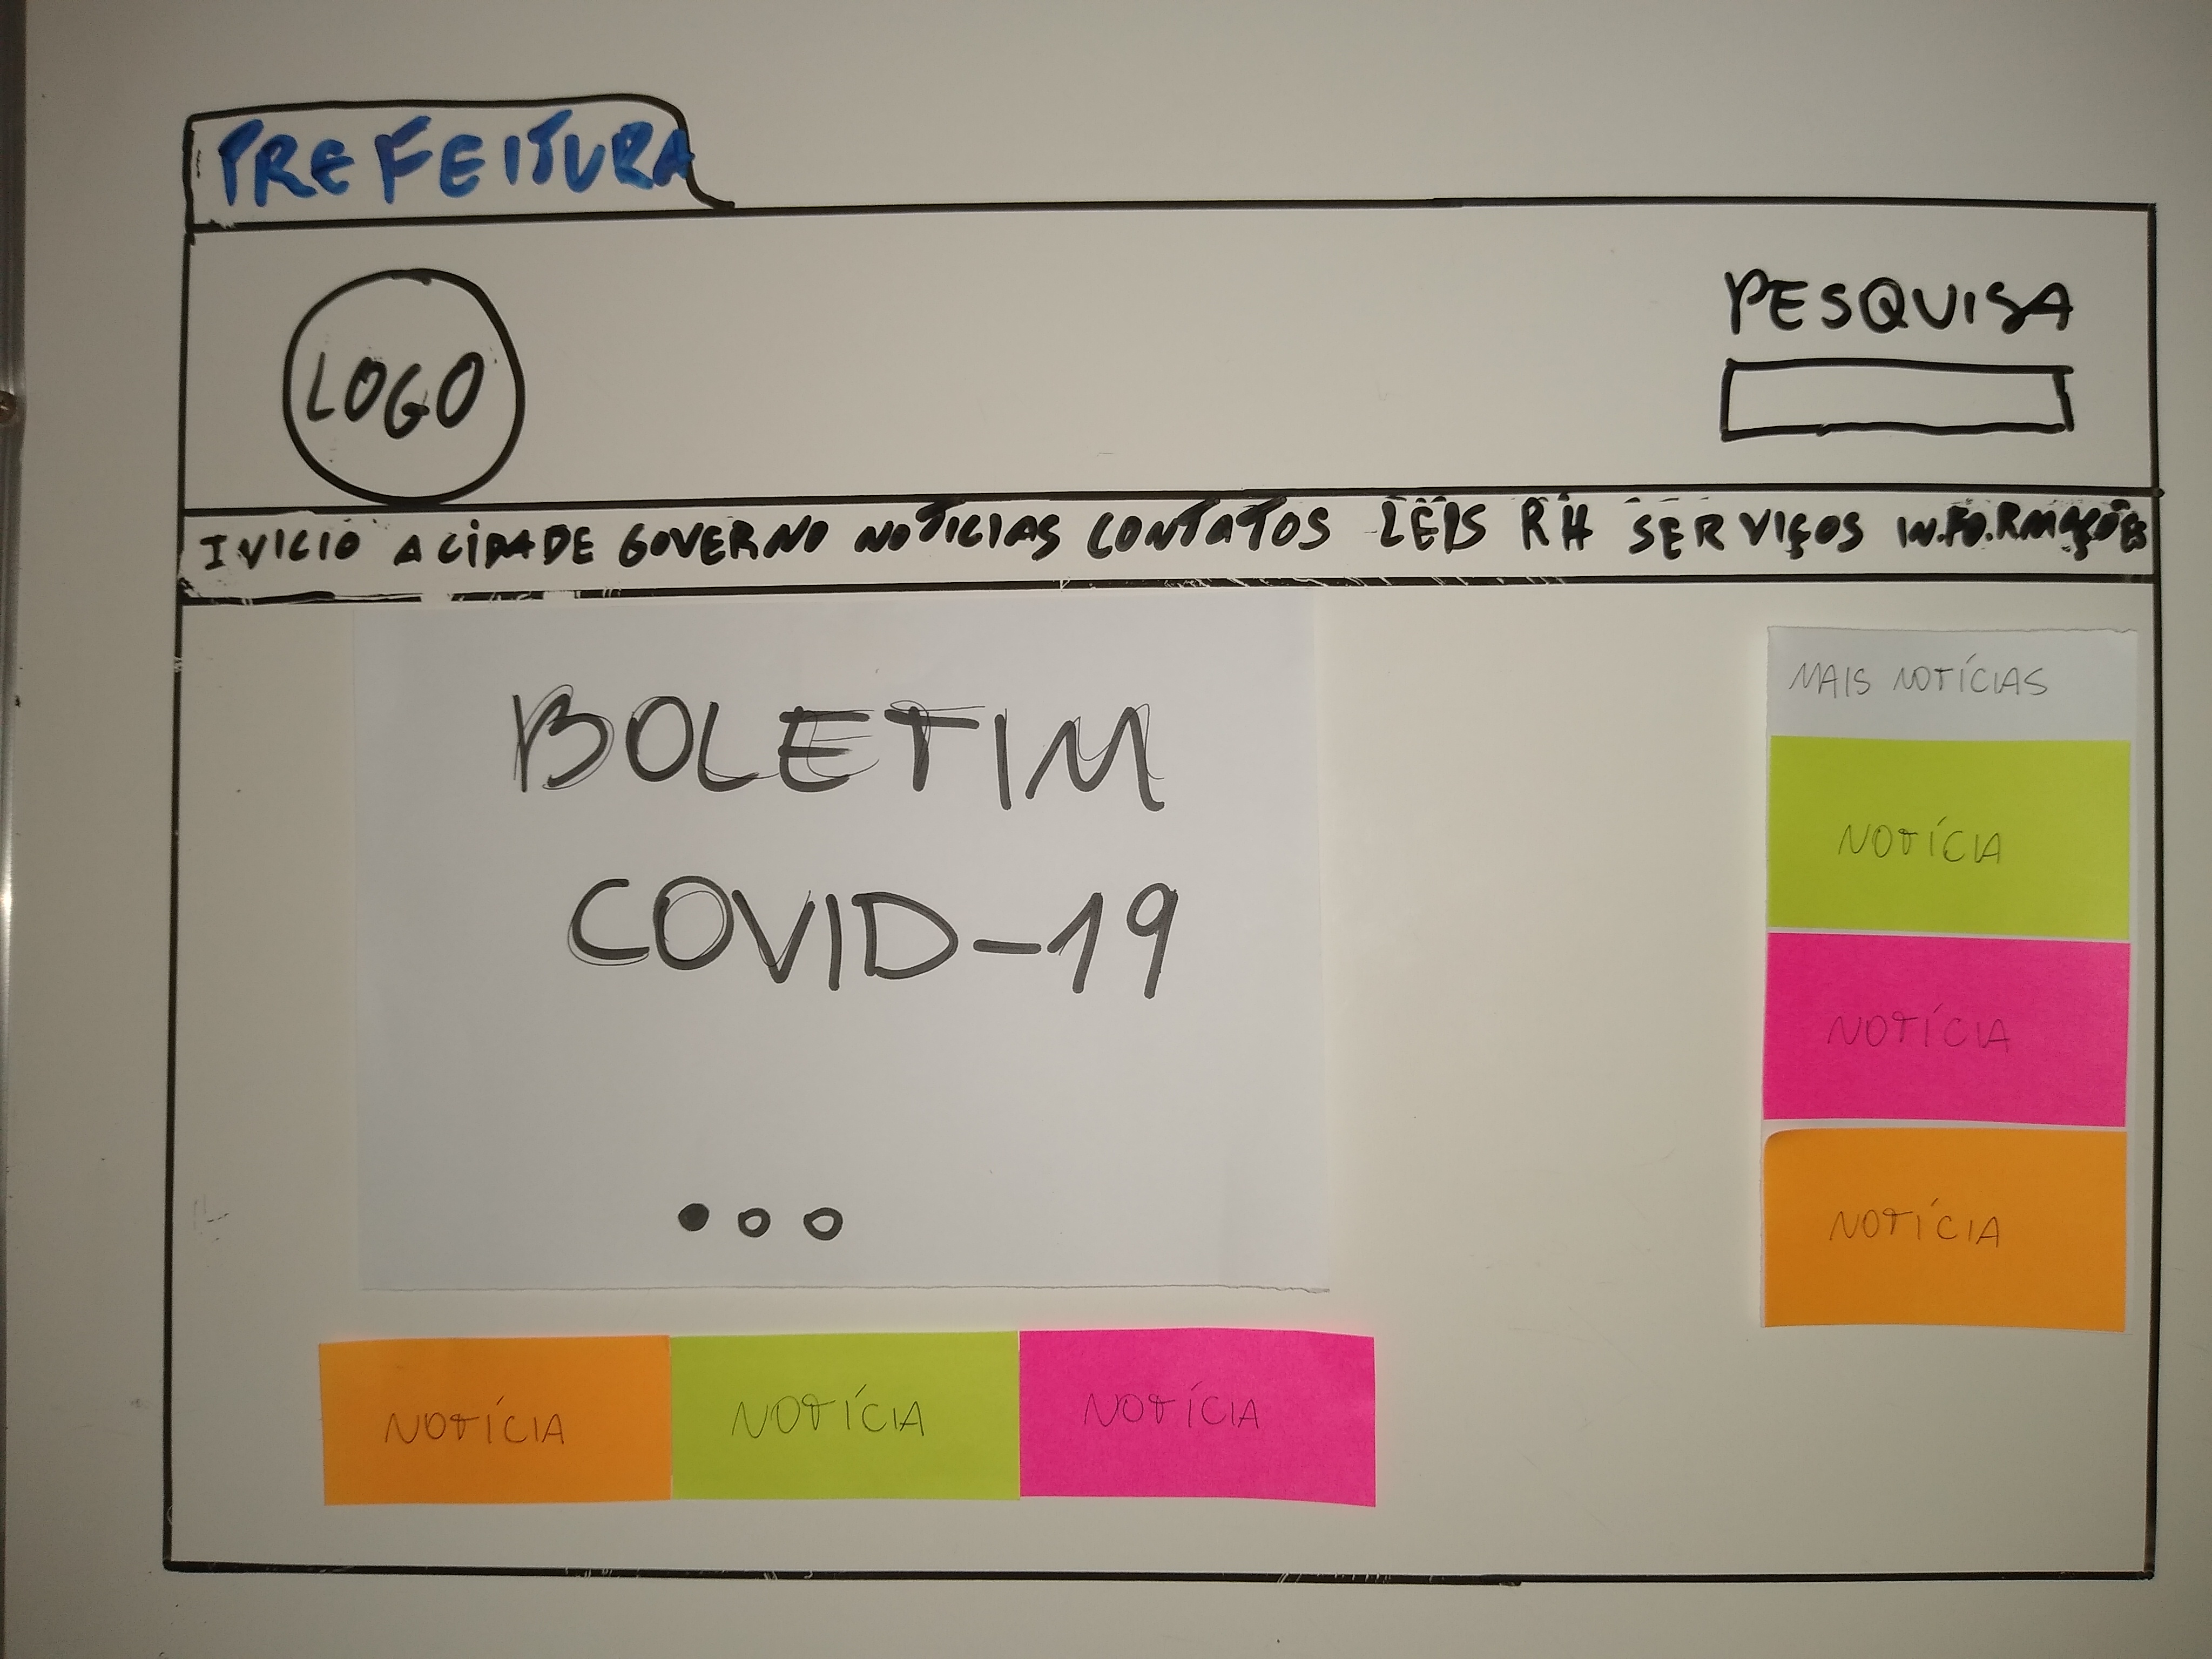 PREFEITURA
LOGO
PESQUISA
INICIO A CIDADE GOVERNO NOTICIAS CONTATOS LEIS RH SERVIÇOS INFORMAÇÕES
BOLETIM
COVID-19
MAIS NOTÍCIAS
NOTÍCIA
NOTÍCIA
NOTÍCIA
NOTÍCIA NOTÍCIA NOTÍCIA